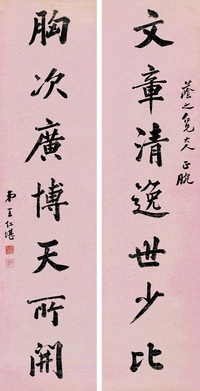 文章清逸世少比
蔭之先大人正腕
胸次廣博天所開
弟王仁堪